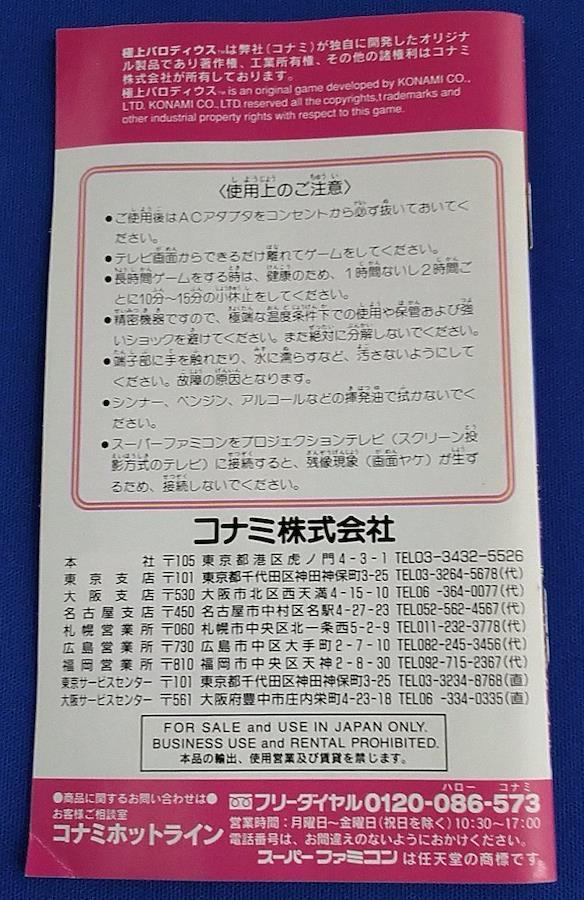 極上パロディウス™は弊社(コナミ)が独自に開発したオリジナ
ル製品であり著作権、工業所有権、その他の諸権利はコナミ
株式会社が所有しております。
極上パロディウス™ is an original game developed by KONAMI CO.,
LTD. KONAMI CO., LTD reserved all the copyrights, trademarks and
other industrial property rights with respect to this game.
〈使用上のご注意〉
●ご使用後はACアダプタをコンセントから必ず抜いておいてく
ださい。
●テレビ画面からできるだけ離れてゲームをしてください。
●長時間ゲームをする時は、健康のため、1時間ないし2時間ご
とに10分〜15分の小休止をしてください。
●精密機器ですので、極端な温度条件下での使用や保管および強
いショックを避けてください。また絶対に分解しないでください。
●端子部に手を触れたり、水に濡らすなど、汚さないようにして
ください。故障の原因となります。
●シンナー、ベンジン、アルコールなどの揮発油で拭かないでく
ださい。
●スーパーファミコンをプロジェクションテレビ(スクリーン投
影方式のテレビ)に接続すると、残像現象(画面ヤケ)が生ず
るため、接続しないでください。
コナミ株式会社
本社 〒105 東京都港区虎ノ門4-3-1 TEL03-3432-5526
東京支店 〒101 東京都千代田区神田神保町3-25 TEL03-3264-5678(代)
大阪支店 〒530 大阪市北区西天満4-15-10 TEL06-364-0077(代)
名古屋支店 〒450 名古屋市中村区名駅4-27-23 TEL052-562-4567(代)
札幌営業所 〒060 札幌市中央区北一条西5-2-9 TEL011-232-3778(代)
広島営業所 〒730 広島市中区大手町2-7-10 TEL082-245-3456(代)
福岡営業所 〒810 福岡市中央区天神2-8-30 TEL092-715-2367(代)
東京サービスセンター 〒101 東京都千代田区神田神保町3-25 TEL03-3234-8768(直)
大阪サービスセンター 〒561 大阪府豊中市庄内栄町4-23-18 TEL06-334-0335(直)
FOR SALE and USE IN JAPAN ONLY.
BUSINESS USE and RENTAL PROHIBITED.
本品の輸出、使用営業及び賃貸を禁じます。
●商品に関するお問い合わせは●
お客様ご相談室
コナミホットライン
ハロー コナミ
フリーダイヤル0120-086-573
営業時間:月曜日〜金曜日(祝日を除く)10:30〜17:00
電話番号は、お間違えのないようにおかけください。
スーパーファミコンは任天堂の商標です。